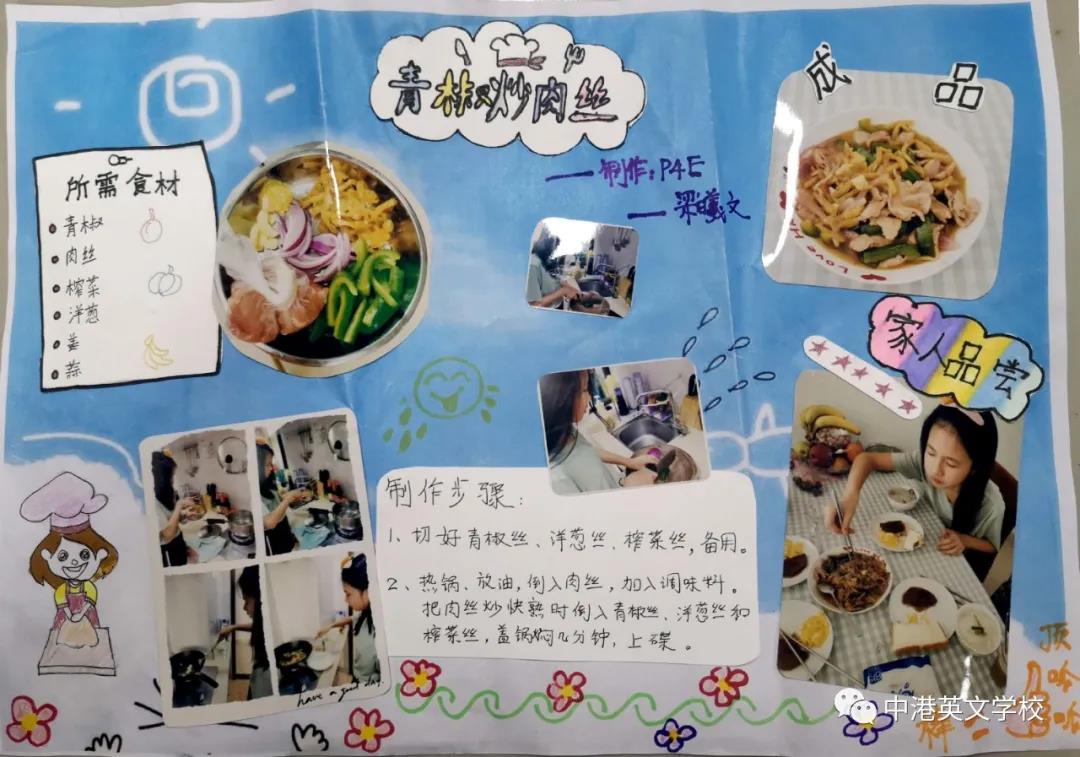 青椒炒肉丝
制作:P4E
梁曦文
成品
所需食材
青椒
肉丝
榨菜
洋葱
姜
蒜
家人品尝
制作步骤:
1、切好青椒丝、洋葱丝、榨菜丝,备用。
2、热锅、放油,倒入肉丝,加入调味料。
把肉丝炒快熟时倒入青椒丝、洋葱丝和
榨菜丝,盖锅焖几分钟,上碟。
have a good day
中港英文学校